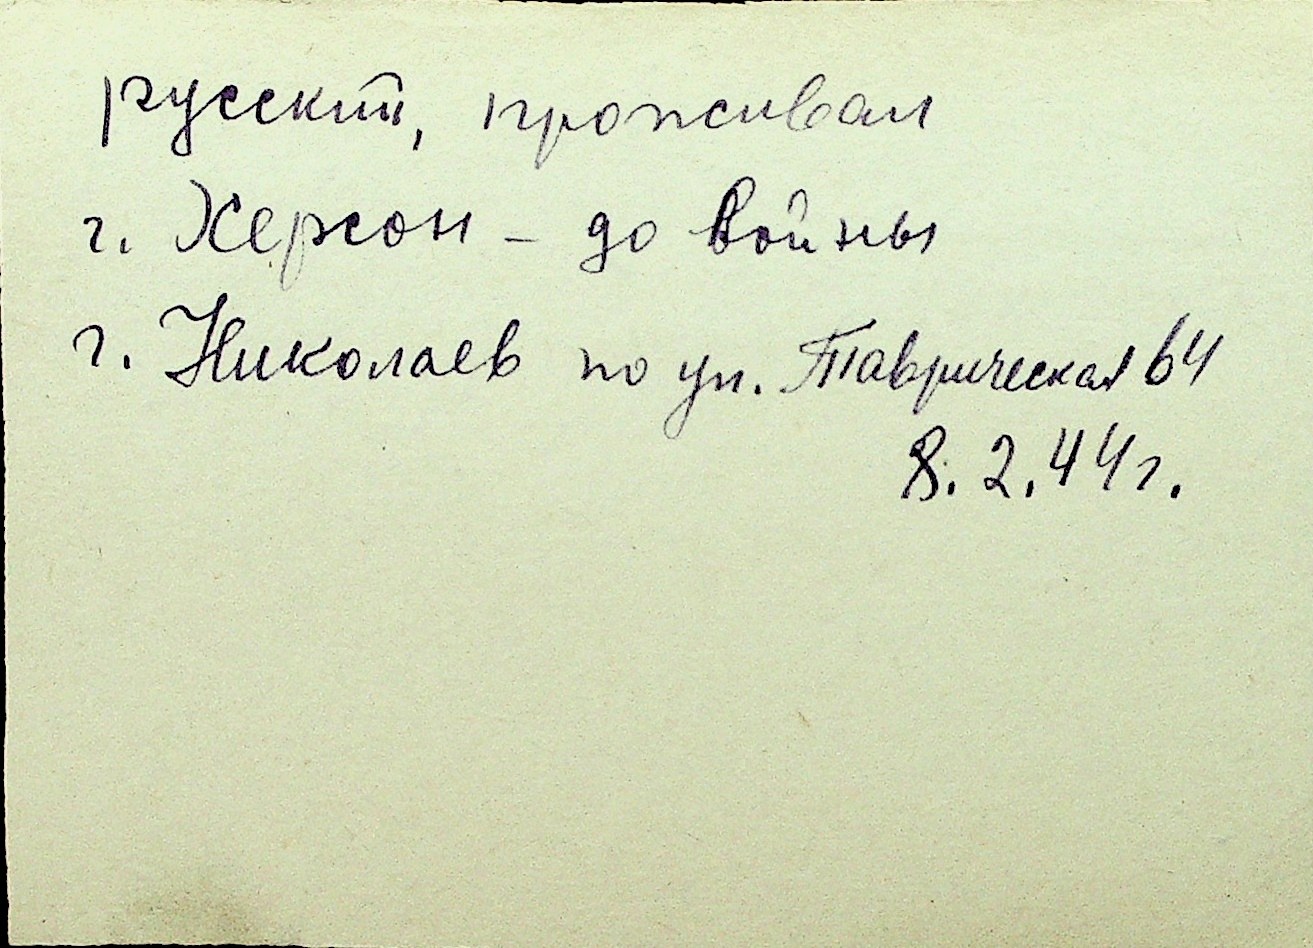 русский, проживал
г. Херсон - до войны
г. Николаев по ул. Таврическая 64
8. 2. 44 г.